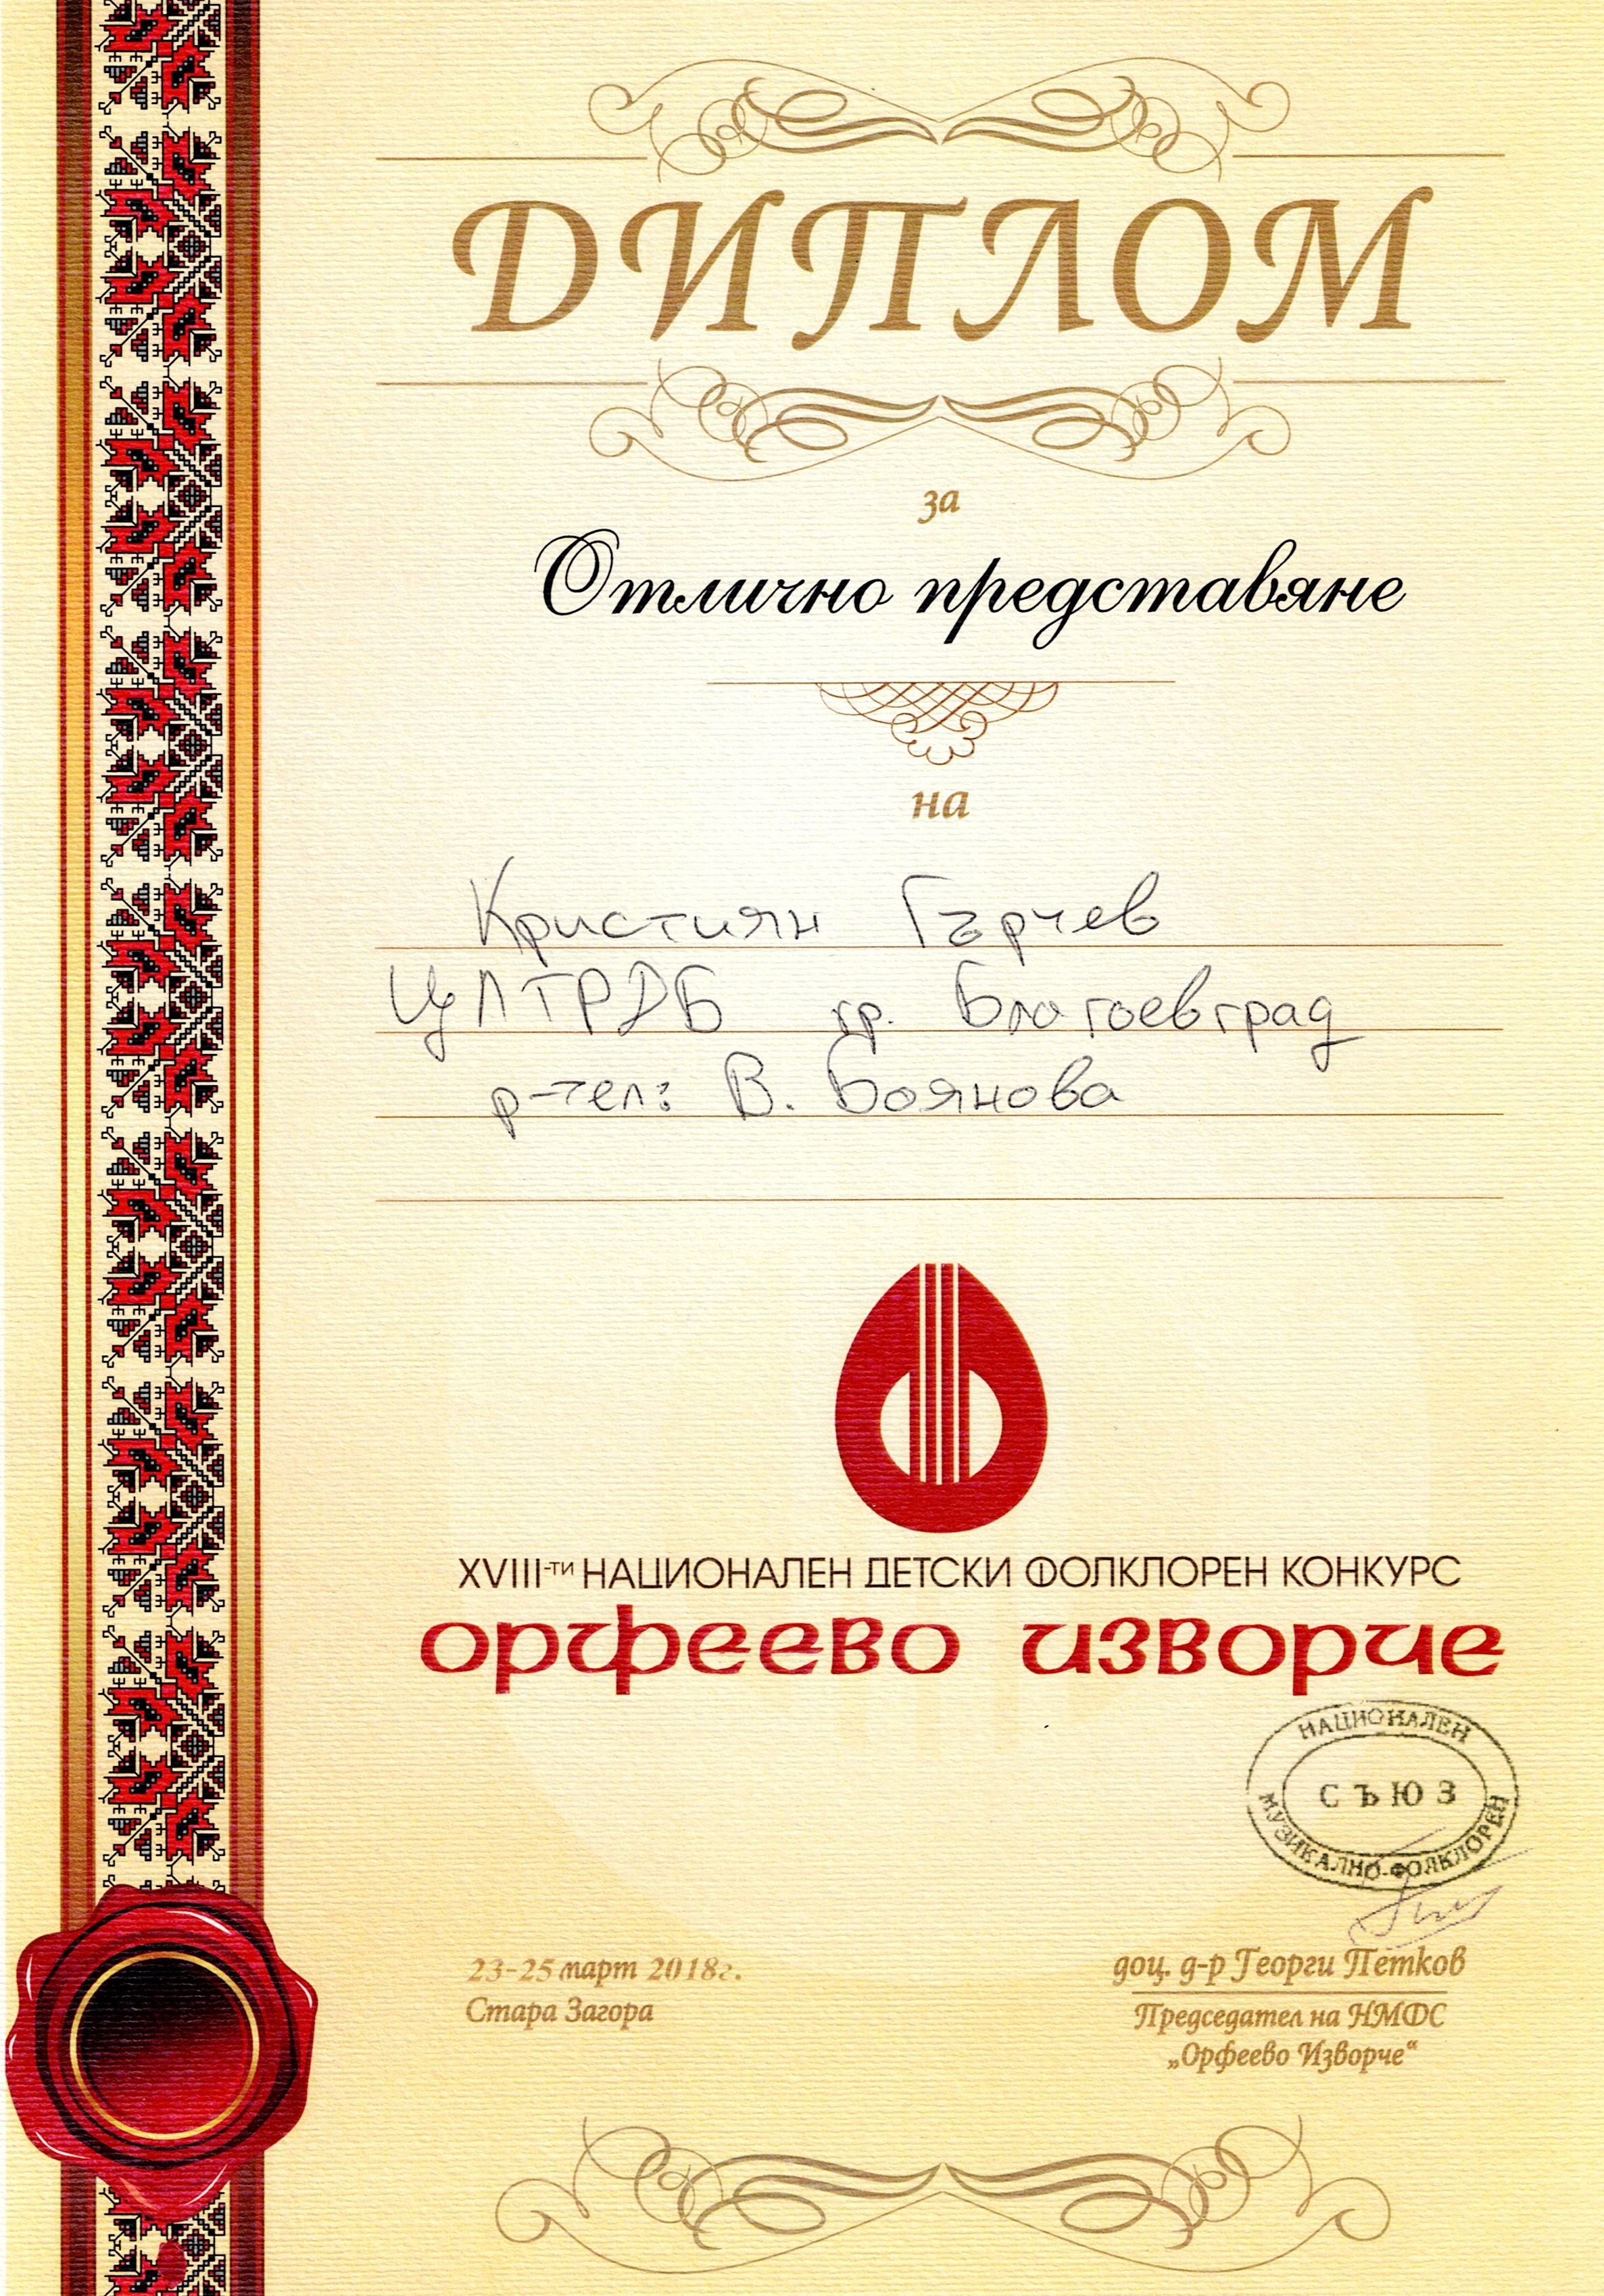 ДИПЛОМ
за
Отлично представяне
на
Кристиян Гърчев
ЦПЛТРДБ гр. Благоевград
р-тел: В. Боянова
XVIII-ти НАЦИОНАЛЕН ДЕТСКИ ФОЛКЛОРЕН КОНКУРС
ОРФЕЕВО ИЗВОРЧЕ
НАЦИОНАЛЕН
СЪЮЗ
МУЗИКАЛНО-ФОЛКЛОРЕН
23-25 март 2018г.
Стара Загора
доц. д-р Георги Петков
Председател на НМФС
„Орфеево Изворче“